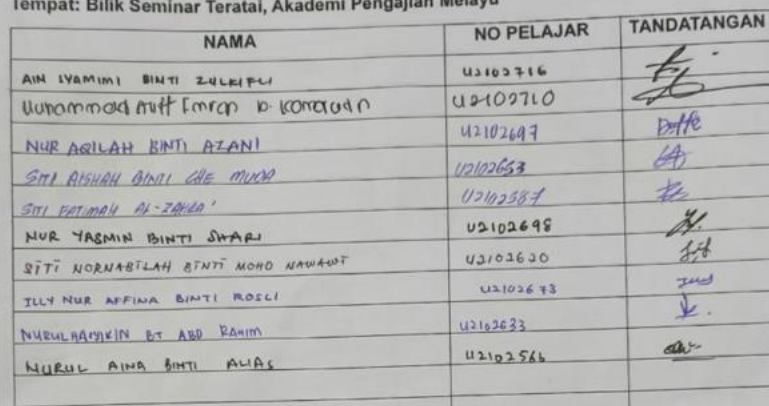 Tempat: Bilik Seminar Teratai, Akademi Pengajian Melayu
NAMA NO PELAJAR TANDATANGAN
AIN SYAMIMI BINTI ZULKIFLI U2102716
Muhammad Aiff Imran b. Komarudin U2102710
NUR AQILAH BINTI AZANI U2102697
SITI AISHAH BINTI CHE MUDA U2102653
SITI FATIMAH AZ-ZAHRA' U2102587
NUR YASMIN BINTI SHARI U2102698
SITI NORNABILAH BINTI MOHD NAWAWI U2102620
ILLY NUR AFFINA BINTI ROSLI U2102673
NURUL HASYIKIN BT ABD RAHIM U2102633
NURUL AINA BINTI ALIAS U2102566